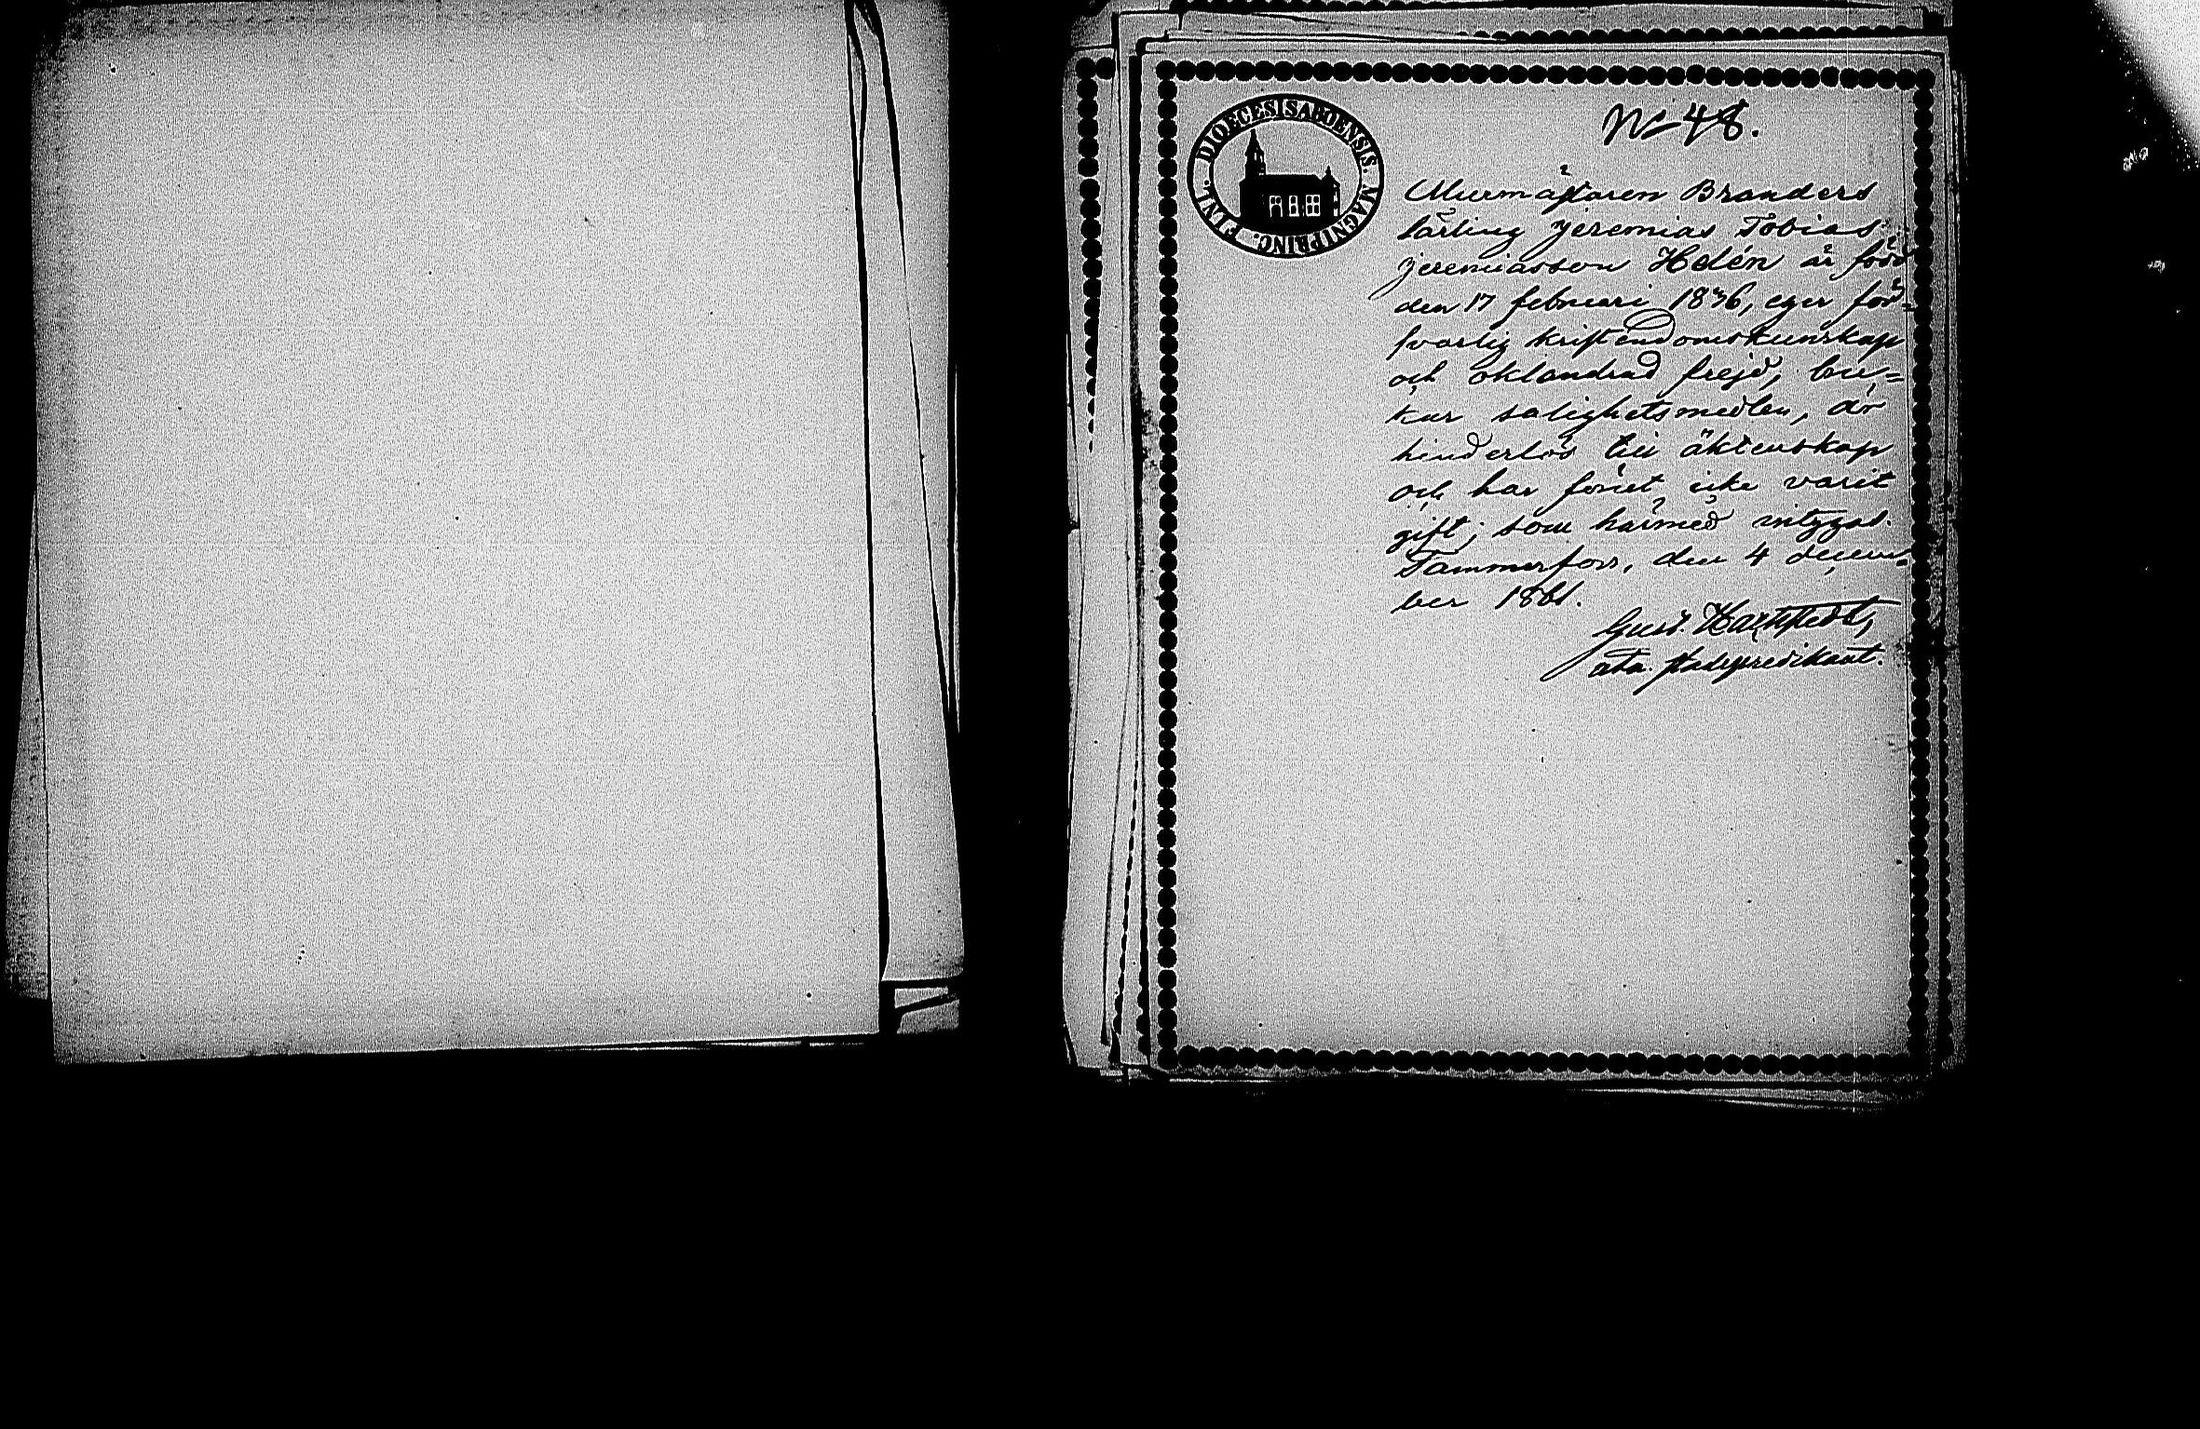 DIOECESIS ABOENSIS. MAGNI PRINC. FINL.
No 48.
Murmästaren Branders
lärling Jeremias Tobias
Jeremiasson Helén är född
den 17 februari 1836, eger för-
svarlig kristendomskunskap
och oklandrad frejd, bru-
kar salighetsmedlen, är
hinderlös till äktenskap
och har förut icke varit
gift; som härmed intygas.
Tammerfors, den 4 decem-
ber 1861.
Gust.